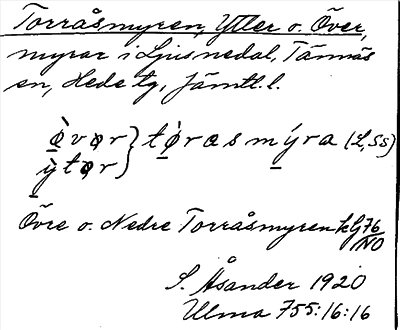 Torråsmyren, Ytter o. Över,
myrar i Ljusnedal, Tännäs
sn, Hede tg, Jämtl. l.
ø̀vər } tø̀rasmýra (L, SS)
ỳtər }
Övre o. Nedre Torråsmyren kG 76/NO
S. Åsander 1920
Ulma 755:16:16